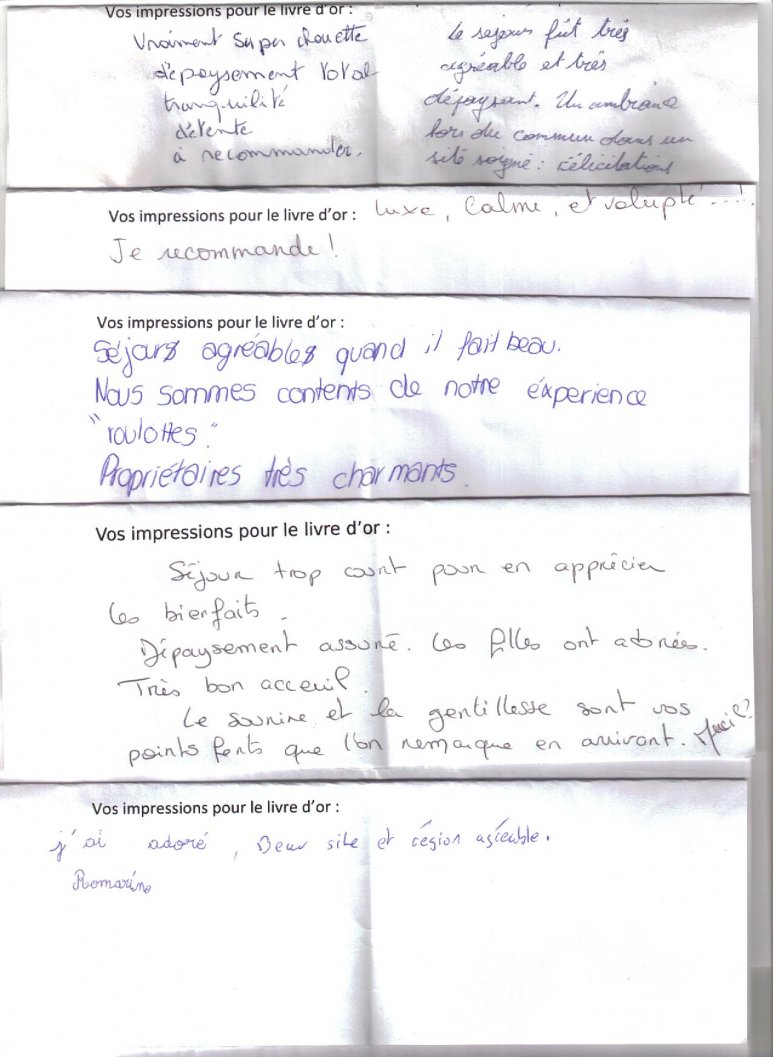 Vos impressions pour le livre d'or :
Vraiment super chouette
dépaysement total
tranquilité
détente
à recommander.
Le sejour fût très
agréable et très
dépaysant. Un ambiance
hors du commun dans un
site soigné : félicitations
Vos impressions pour le livre d'or : Luxe, Calme, et volupté ....!
Je recommande !
Vos impressions pour le livre d'or :
Séjours agréables quand il fait beau.
Nous sommes contents de notre expérience
"roulottes."
Propriétaires très charmants.
Vos impressions pour le livre d'or :
Séjour trop court pour en apprécier
les bienfaits.
Dépaysement assuré. Les filles ont adorées.
Très bon acceuil.
Le sourire et la gentillesse sont vos
points forts que l'on remarque en arrivant. Merci
Vos impressions pour le livre d'or :
j'ai adoré, Beau site et région agréable.
Romarine